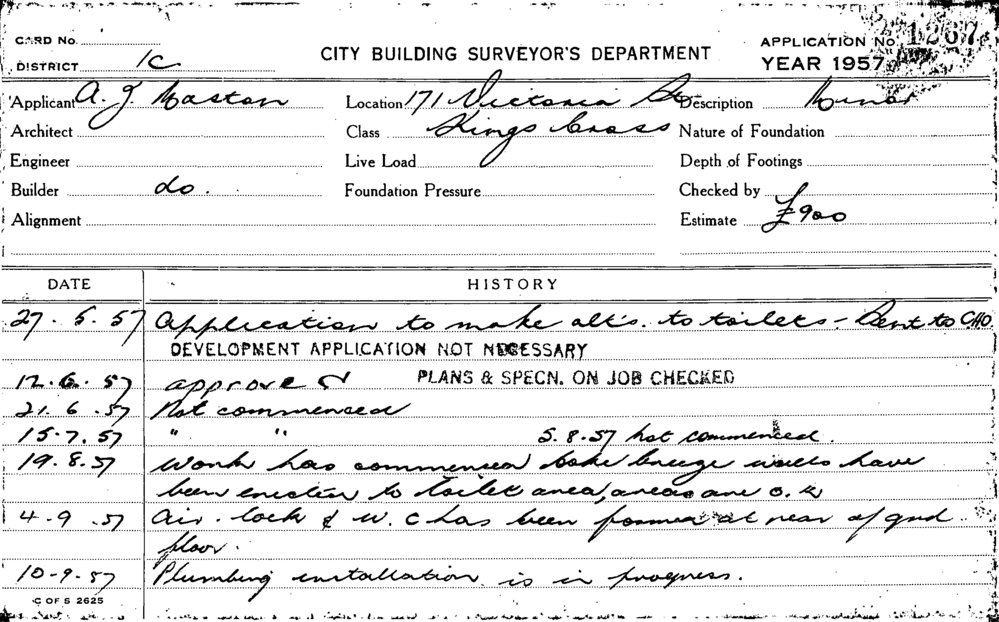 CARD No.
CITY BUILDING SURVEYOR'S DEPARTMENT
APPLICATION No. 1267
DISTRICT 1C
YEAR 1957
Applicant A. J. Location 171 Victoria St Description Minor
Architect Class Kings Cross Nature of Foundation
Engineer Live Load Depth of Footings
Builder do. Foundation Pressure Checked by
Alignment Estimate £900
DATE HISTORY
27.5.57 Application to make alt's. to toilets - Sent to CHO.
DEVELOPMENT APPLICATION NOT NECESSARY
12.6.57 approved PLANS & SPECN. ON JOB CHECKED
21.6.57 Not commenced
15.7.57 " " 5.8.57 not commenced.
19.8.57 Work has commenced coke breeze walls have
been erected to toilet area, areas are o.k
4-9.57 Air-lock & W.C has been formed at rear of gnd
floor.
10-9-57 Plumbing installation is in progress.
C OF S 2625